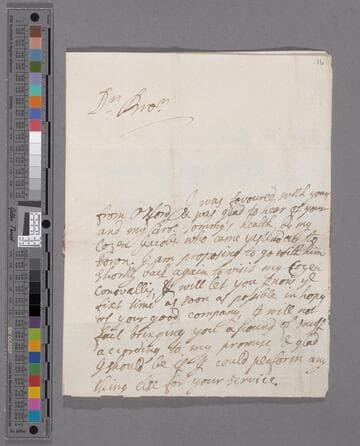 16
Dr Bror
I was favoured with your
from Oxford & was glad to hear of your
and my Bror Tommy's health, by my
Cozen who came yesterday to
town. I am proposing to go with him
back again to visit my Cozen
& will let you know ye
first time as soon as possible in hopes
of your good company, I will not
fail bringing you a pound of snuff
according to my promise & glad
I should be if I could perform any
thing else for your service.